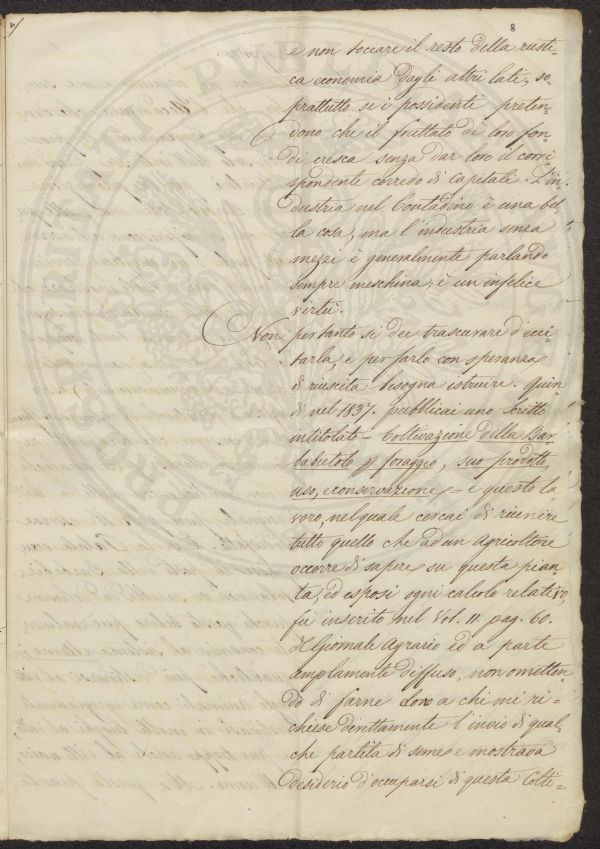 8
e non toccare il resto della rusti-
ca economia dagli altri lati, so-
prattutto se i possidenti preten-
dono che il fruttato di loro fon-
di cresca senza dar loro il corri-
spondente corredo di capitali. L'in-
dustria nel Contadino è una bel-
la cosa, ma l'industria senza
mezzi è generalmente parlando
sempre meschina, è un infelice
virtù.
Non pertanto si dee trascurare d'ecci-
tarla, e per farlo con speranza
di riuscita bisogna istruire. Quin
di nel 1837. pubblicai uno scritto
intitolato = Coltivazione della Bar
babietola p foraggio, suo prodotto,
uso, e conservazione = e questo la
voro, nel quale cercai di riunire
tutto quello che ad un Agricoltore
occorre di sapere su questa pian
ta, ed esposi ogni calcolo relativo,
fù inserito nel Vol. 11. pag. 60.
Il Giornale Agrario ed a parte
amplamente diffuso, non ometten-
do di farne dono a chi mi ri-
chiese direttamente l'invio di qual,
che partita di seme e mostrava
desiderio d'occuparsi di questa Colti=